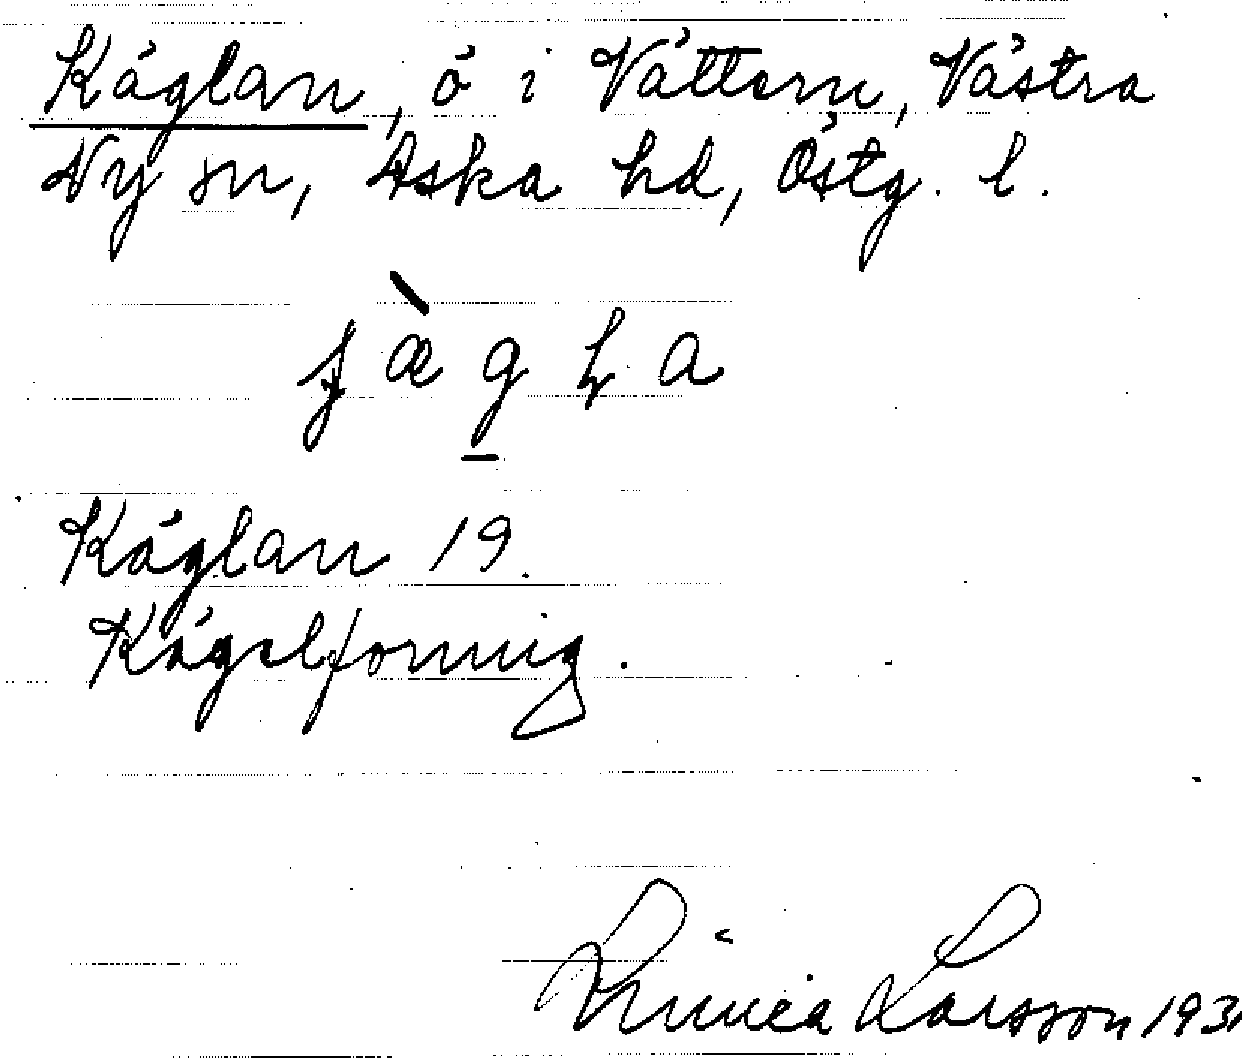 Käglan, ö i Vättern, Västra
Ny sn, Aska hd, Östg. l.
Käglan 19.
Kägelformig.
Linnéa Larsson 193